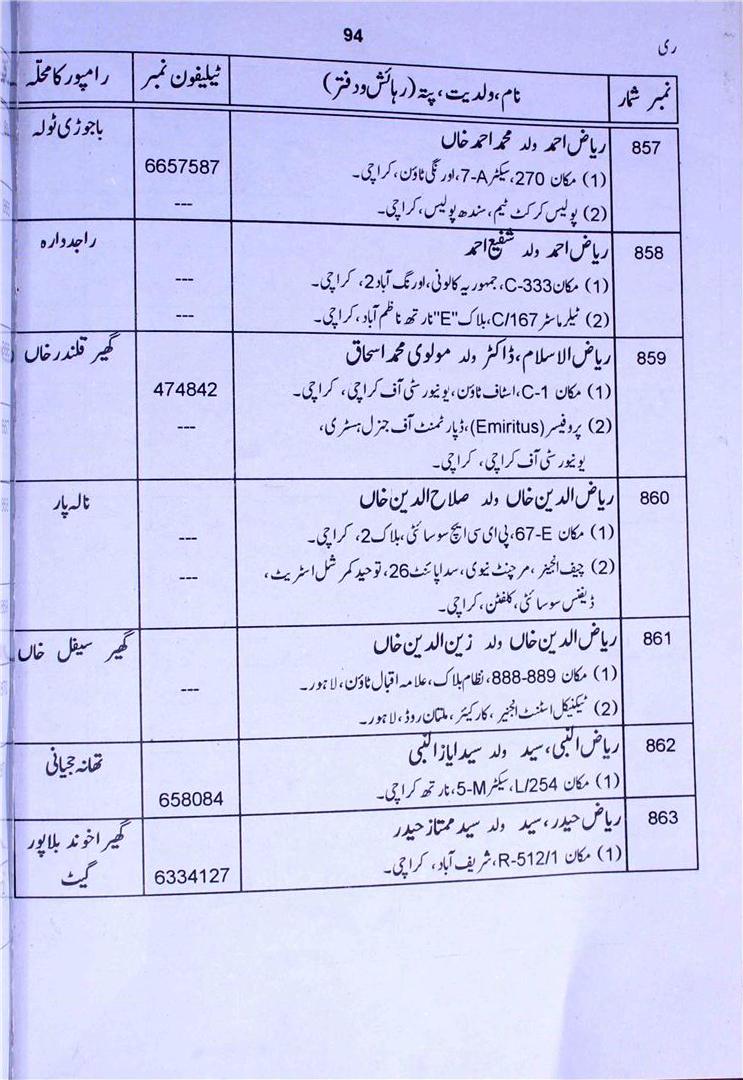 94
ری
نمبر شمار
نام، ولدیت، پتہ (رہائش و دفتر)
ٹیلیفون نمبر
رامپور کا محلّہ
857
ریاض احمد ولد محمد احمد خاں
باجوڑی ٹولہ
(1) مکان 270، سیکٹر 7-A، اورنگی ٹاؤن، کراچی۔
6657587
(2) پولیس کرکٹ ٹیم، سندھ پولیس، کراچی۔
---
858
ریاض احمد ولد شفیع احمد
راجدوارہ
(1) مکان C-333، جمہوریہ کالونی، اورنگ آباد 2، کراچی۔
---
(2) ٹیلر ماسٹر C/167، بلاک "E" نارتھ ناظم آباد، کراچی۔
---
859
ریاض الاسلام، ڈاکٹر ولد مولوی محمد اسحاق
گھیر قلندر خاں
(1) مکان C-1، اسٹاف ٹاؤن، یونیورسٹی آف کراچی، کراچی۔
474842
(2) پروفیسر (Emiritus)، ڈپارٹمنٹ آف جنرل ہسٹری،
---
یونیورسٹی آف کراچی، کراچی۔
860
ریاض الدین خاں ولد صلاح الدین خاں
نالہ پار
(1) مکان 67-E، پی ای سی ایچ سوسائٹی، بلاک 2، کراچی۔
---
(2) چیف انجینئر، مرچنٹ نیوی، سدا پائنٹ 26، توحید کمرشل اسٹریٹ،
---
ڈیفنس سوسائٹی، کلفٹن، کراچی۔
861
ریاض الدین خاں ولد زین الدین خاں
گھیر سیفل خاں
(1) مکان 888-889، نظام بلاک، علامہ اقبال ٹاؤن، لاہور۔
---
(2) ٹیکنیکل اسٹنٹ انجینئر، کارکیئر، ملتان روڈ، لاہور۔
862
ریاض النبی، سید ولد سید ایاز النبی
تھانہ جیانی
(1) مکان L/254، سیکٹر 5-M، نارتھ کراچی۔
658084
863
ریاض حیدر، سید ولد سید ممتاز حیدر
گھیر اخوند بلاپور
(1) مکان R-512/1، شریف آباد، کراچی۔
6334127
گیٹ